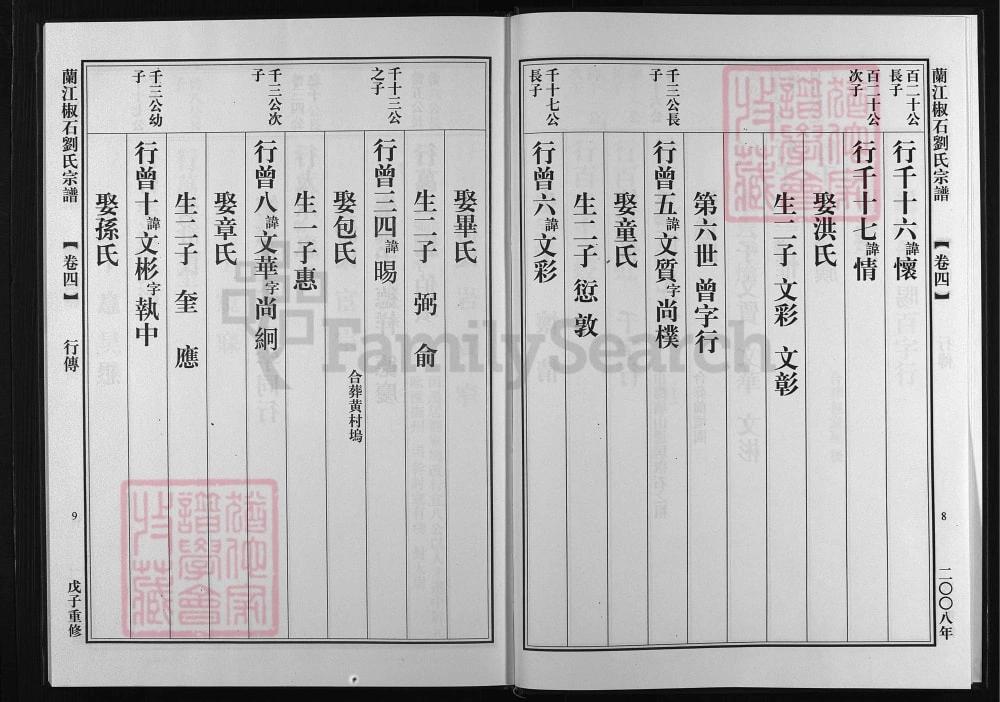 蘭江椒石劉氏宗譜
【卷四】
行傳
8
二〇〇八年
百二十公長子
行千十六諱懷
百二十公次子
行千十七諱情
娶洪氏
生二子 文彩 文彰
第六世 曾字行
千三公長子
行曾五諱文質字尚樸
娶童氏
生二子 愆 敦
千十七公長子
行曾六諱文彩
娶畢氏
生二子 弼 俞
千十三公之子
行曾三四諱暘
合葬黄村塢
娶包氏
生一子惠
千三公次子
行曾八諱文華字尚絅
娶章氏
生二子 奎 應
千三公幼子
行曾十諱文彬字執中
娶孫氏
蘭江椒石劉氏宗譜
【卷四】
行傳
9
戊子重修
FamilySearch